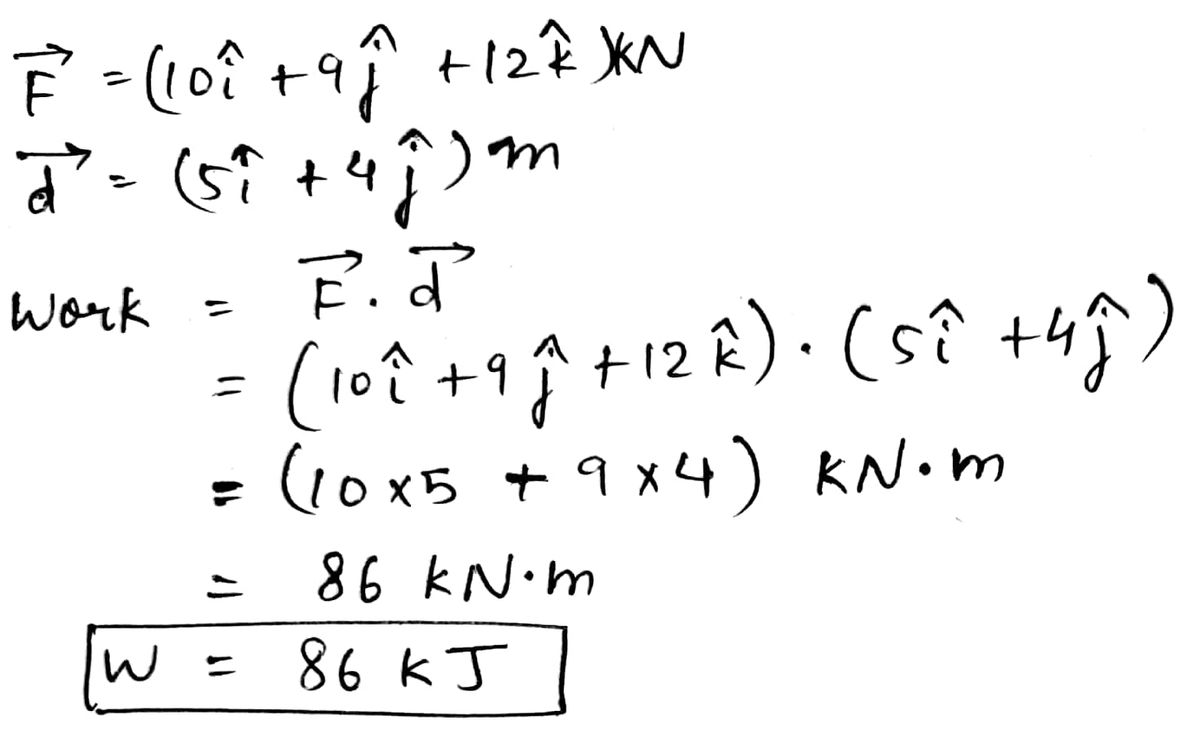 $\vec{F} = (10\hat{i} + 9\hat{j} + 12\hat{k})kN$
$\vec{d} = (5\hat{i} + 4\hat{j}) m$
Work $= \vec{F} \cdot \vec{d}$
$= (10\hat{i} + 9\hat{j} + 12\hat{k}) \cdot (5\hat{i} + 4\hat{j})$
$= (10 \times 5 + 9 \times 4) \ KN \cdot m$
$= 86 \ kN \cdot m$
$W = 86 \ kJ$